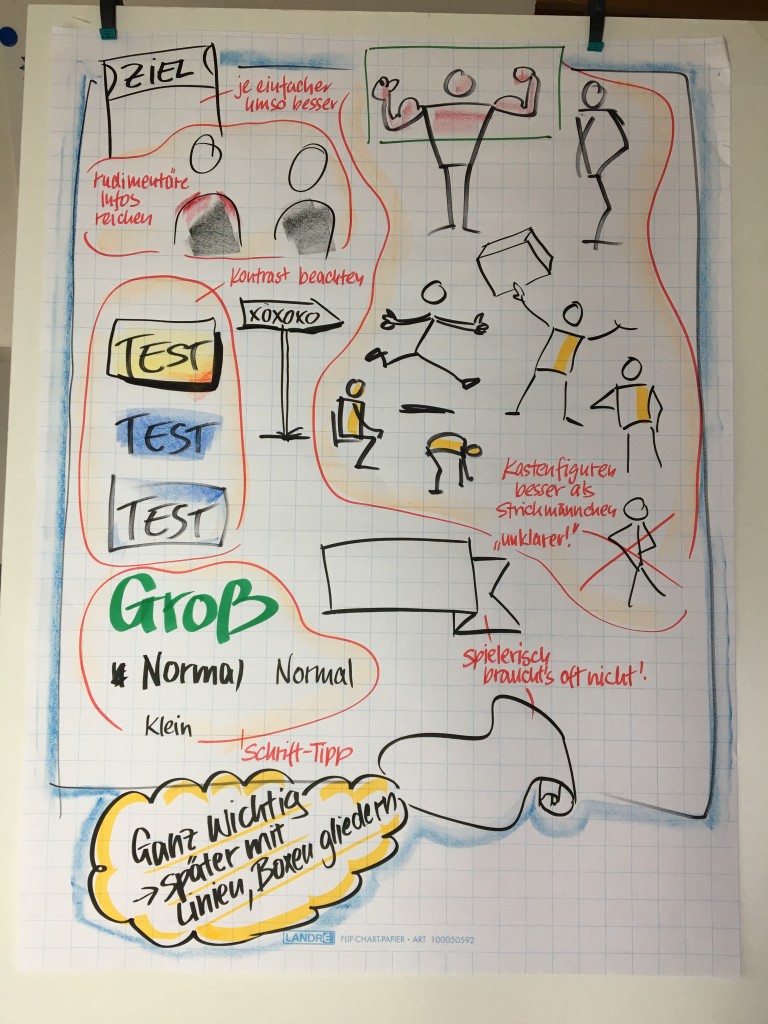 ZIEL
je einfacher
umso besser
rudimentäre
Infos
reichen
Kontrast beachten
XOXOXO
TEST
TEST
TEST
Kastenfiguren
besser als
Strichmännchen
„unklarer!"
Groß
Normal Normal
Klein
Schrift-Tipp
spielerisch
braucht's oft nicht!
Ganz wichtig
→ später mit
Linien, Boxen gliedern
LANDRÉ FLIP-CHART-PAPIER • ART. 100050592